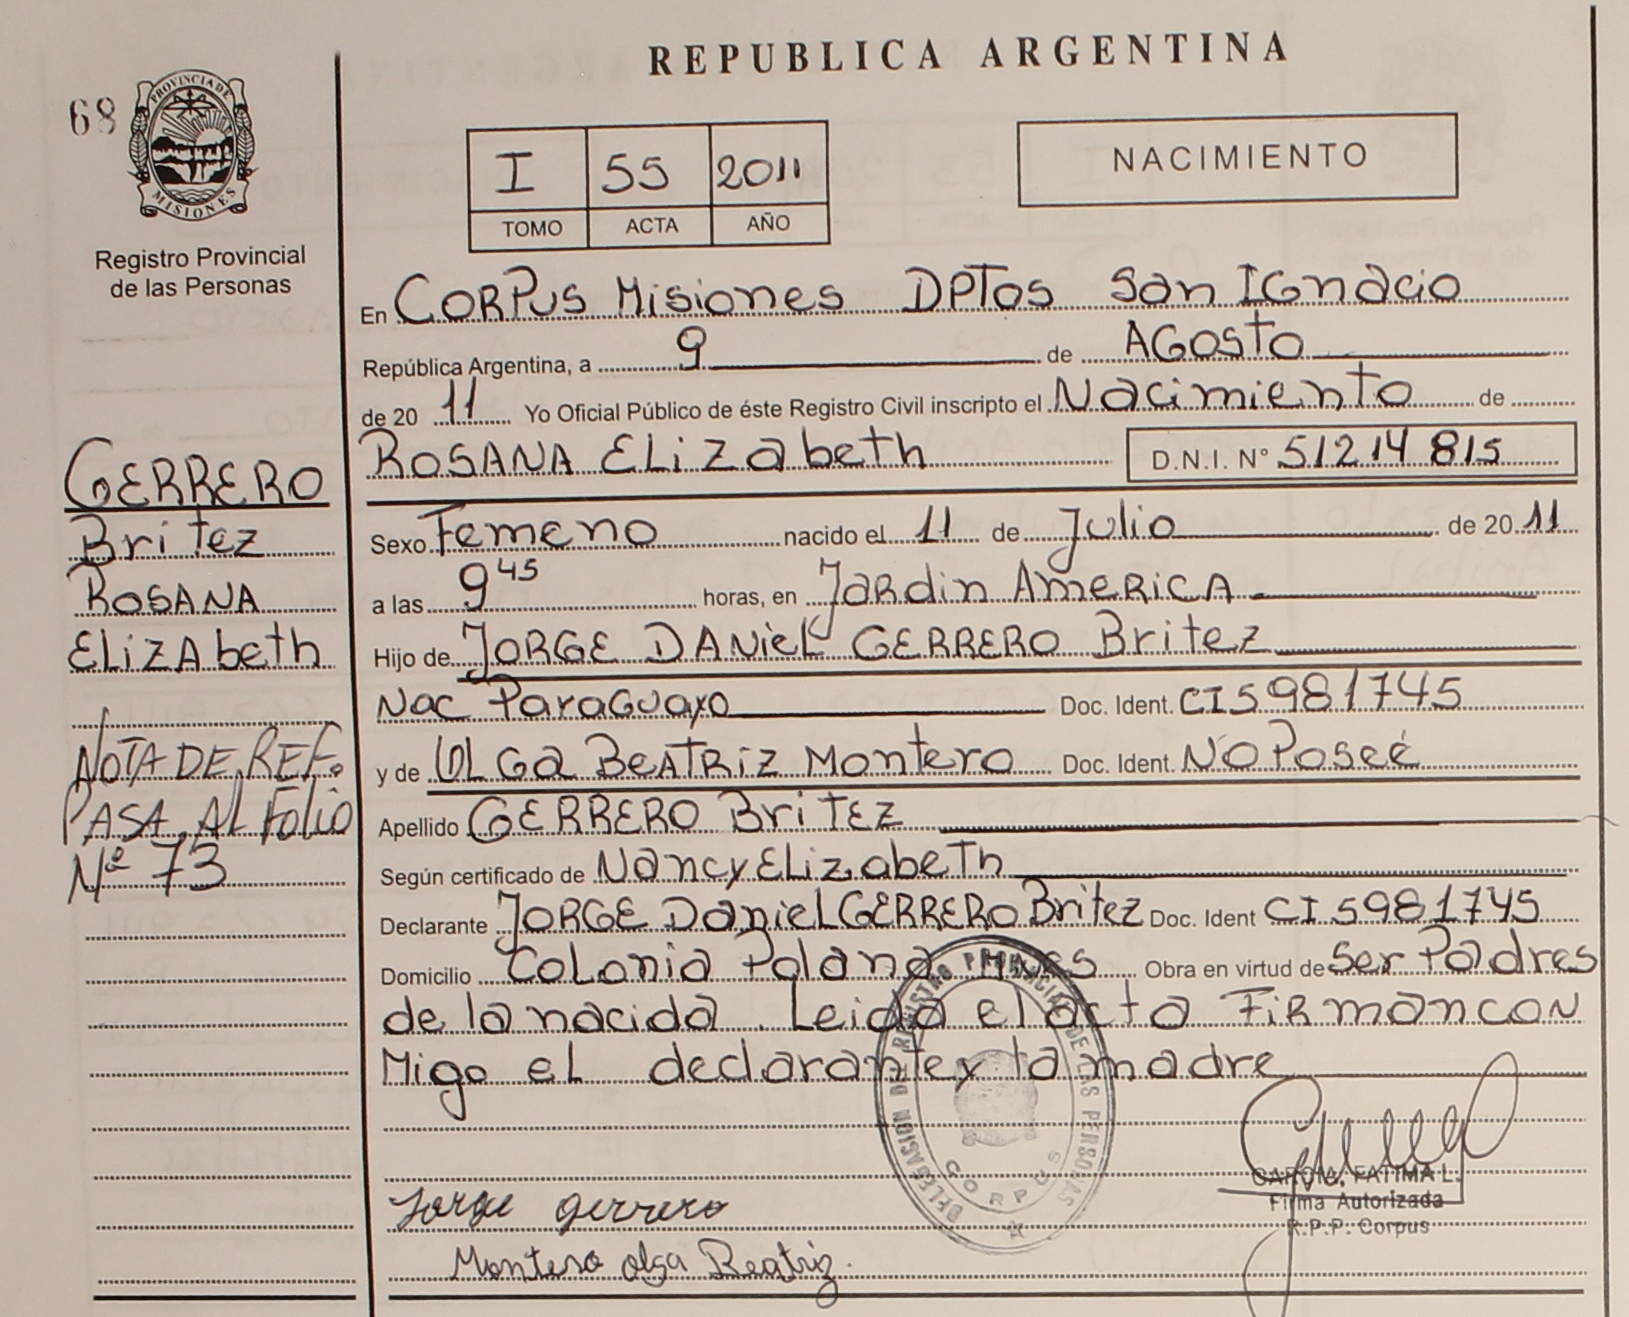 REPUBLICA ARGENTINA
68
PROVINCIA DE
MISIONES
Registro Provincial
de las Personas
I 55 2011
TOMO ACTA AÑO
NACIMIENTO
En CORPUS Misiones DPTos San IGnacio
República Argentina, a 9 de AGosto
de 20 11 Yo Oficial Público de éste Registro Civil inscripto el Nacimiento de
ROSANA ELizabeth D.N.I. N° 51214815
Sexo Femeno nacido el 11 de Julio de 20 11
a las 9 45 horas, en JARdin AmeRICA
Hijo de JORGE DANieL GERRERO Britez
Nac ParaGuayo Doc. Ident. CI5981745
y de OLGa BeATRiz Montero Doc. Ident. NO Poseé
Apellido GERRERO BriTEZ
Según certificado de Nancy Elizabeth
Declarante JORGE DanieL GERRERO Britez Doc. Ident CI 5981745
Domicilio Colonia Polana Obra en virtud de Ser Padres
de la nacida. Leida el acta FiRmancon
Migo eL declarantey la madre
GERRERO
Britez
ROSANA
ELizAbeth
NOTA DE REF.
PASA AL FOLIO
Nº 73
DELEGASION DE REGISTRO PROVINCIAL DE LAS PERSONAS
CORPUS
Jorge Gerrero
Montero olga Beatriz.
FATIMA L.
Firma Autorizada
R.P.P. Corpus